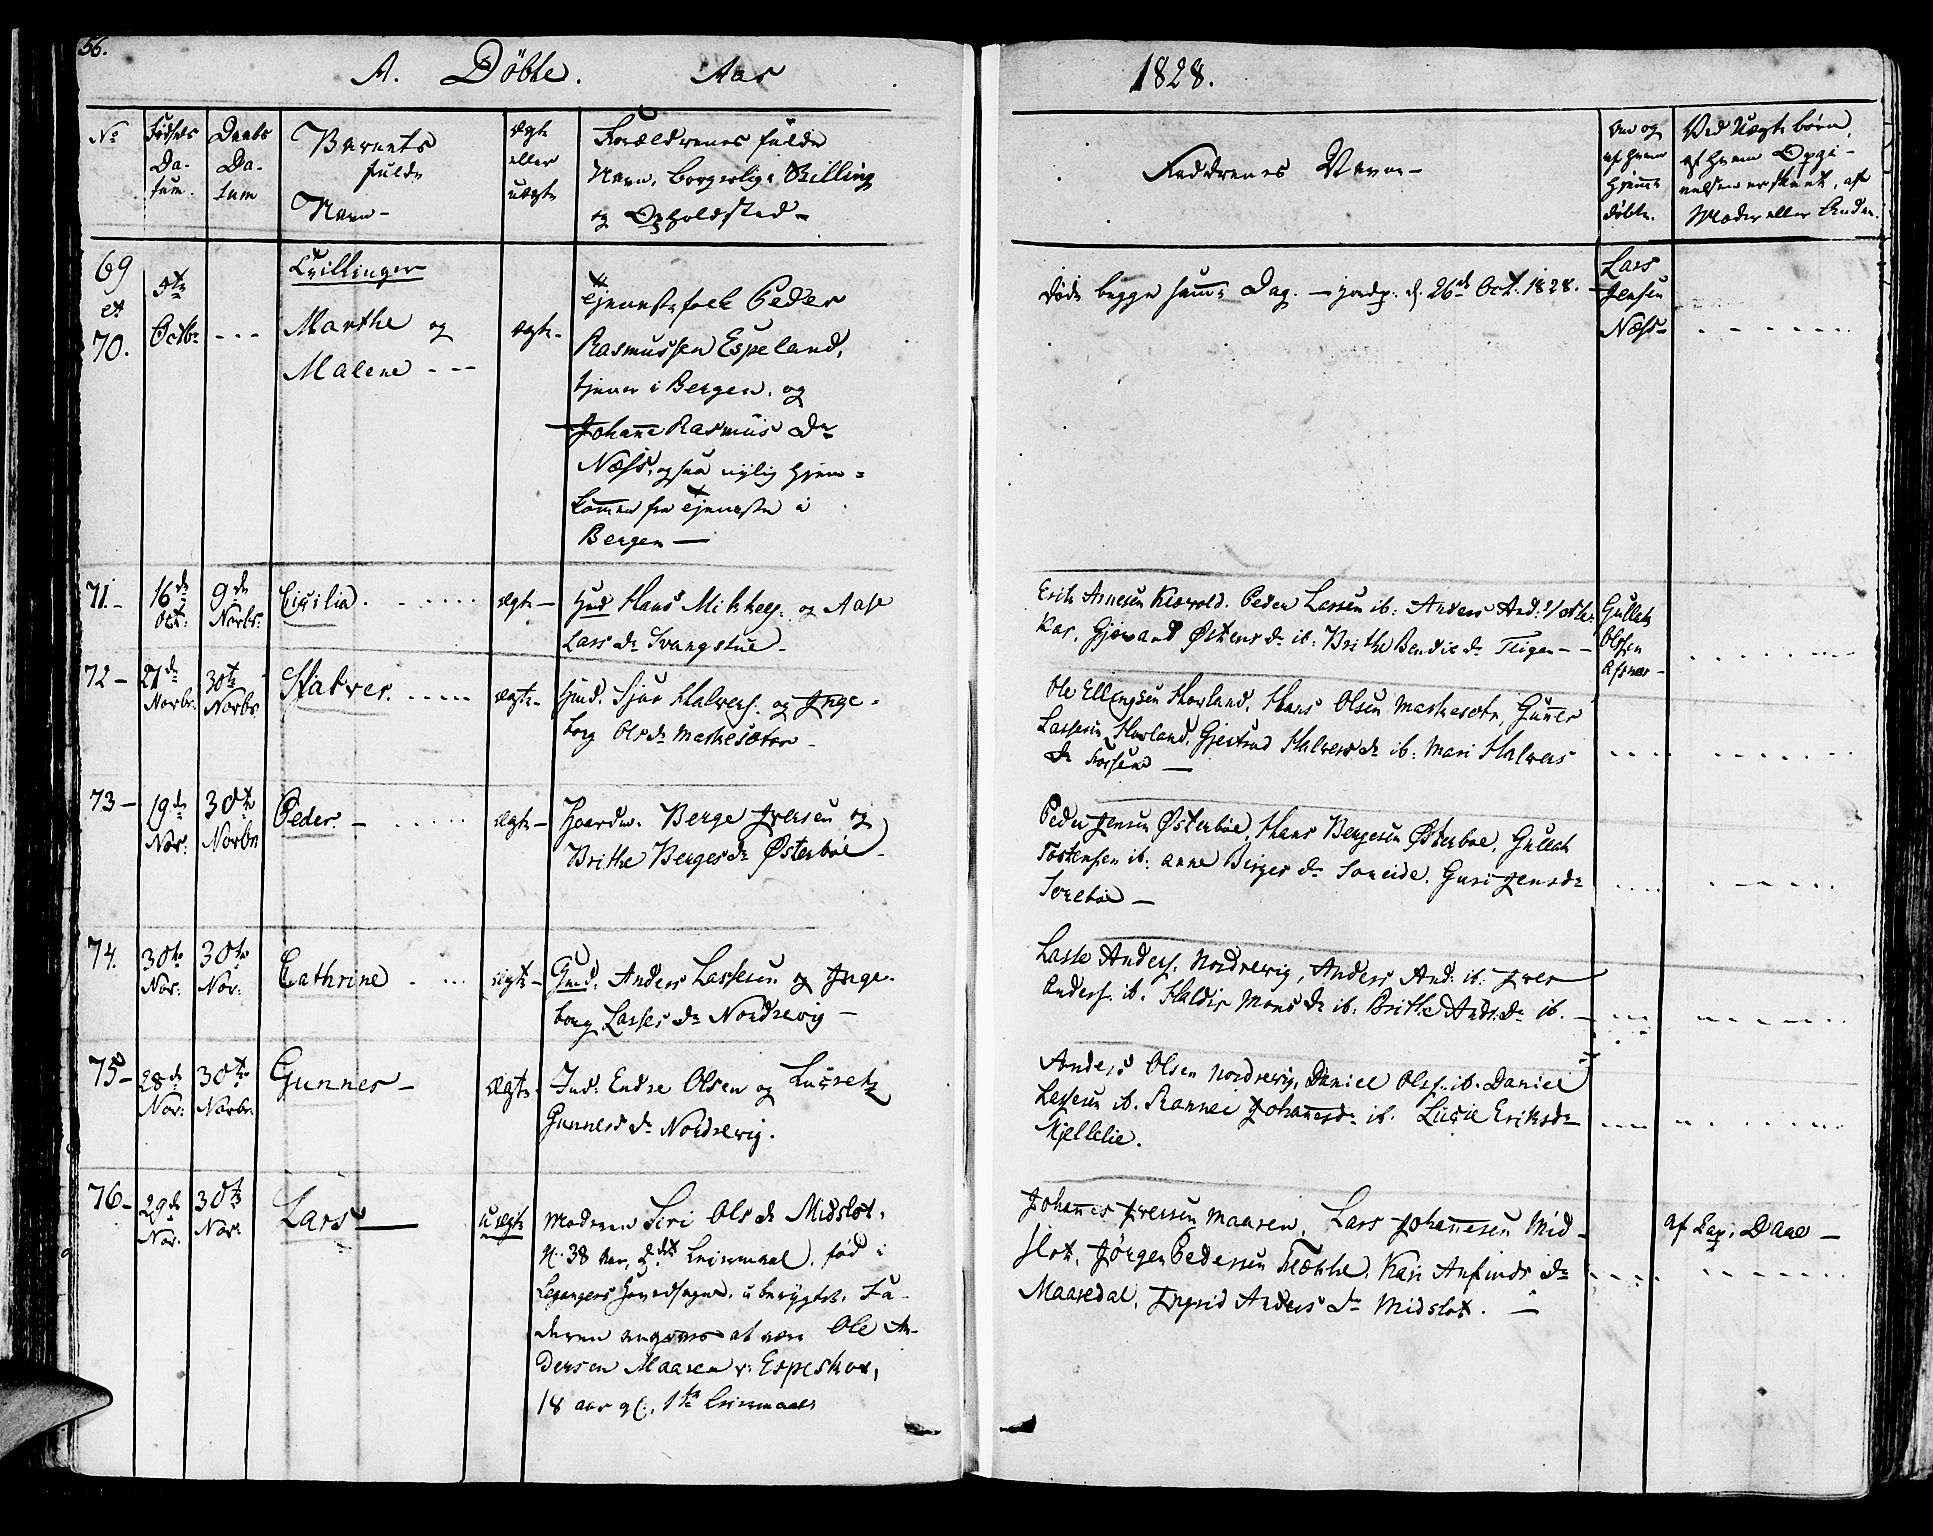 56.
A. Döbte. Aar
1828.
No
Födsels Da- tum.
Daabs Da- tum
Barnets fulde Navn-
ægte eller uægte
Forældrenes fulde Navn, borgerlige Stilling og Opholdsted-
Faddrenes Navne-
om og af hvem hjemme døbte.
Ved Uægte børn, af hvem Opgi- velsen er skeet, af Moder eller Anden.
69 et 70.
5te Octbr
Tvillinger
Marthe og
Malene
ægte-
Tjenestefolk Peder
Rasmussen Espeland,
tjener i Bergen, og
Johanne Rasmus Dr
Næss, ogsaa nylig hjem=
kommen fra Tjeneste i
Bergen-
døde begge samme Dag. - jordp. d. 26de Oct. 1828.
Lars
Jensen
Næss-
71.- 16de Oct: 9de Novbr:
Cicilia.
ægte-
Hmd Hans Mikkels. og Aase
Lars Dr Svangstue-
Erik Arnesen Kowold. Peder Lassen ib: Anders And:
Gjørand Østens Dr ib: Brithe Bendix Dr Teigen-
Gullak
Olssen
72- 27de Novbr. 30te Novbr
Halver.
ægte-
Hmd. Sjur Halvers. og Inge-
borg Ols Dr Maskesæter-
Ole Ellingsen Hovland, Hans Olsen Maskesætr, Gunner
Lassesen Hovland, Gjertrud Halvers Dr ib: Mari Halvers
Dr Fossene-
73- 19de Nov: 30te Novbr
Peder.-
ægte-
Huusm. Berge Iversen og
Brithe Berges Dr Østerböe-
Peder Jensen Østerböe, Hans Bergesen Østerböe, Gullak
Tostensen ib: Anne Birges Dr Soreide. Guri Jensdr
Soreböe-
74. 30te Nov: 30te Nov:
Cathrine
ægte-
Gmd. Anders Lassesen og Inge-
borg Lasses Dr Nordrevig-
Lasse Anders. Nordrevig, Anders And: ib: Iver
Anders. ib. Haldis Mons Dr ib: Brithe Ands: Dr ib.
75- 28de Nov: 30te Novbr:
Gunner-
ægte-
Ind: Endre Olsen og Lucretz
Gunners Dr Nordrevig.
Anders Olsen Nordrevig, Daniel Ols. ib. Daniel
Lassesen ib. Rannei Johannesdr ib. Lucie Eriksdr
Kjellelie.
76- 29de Nov: 30te Nov:
Lars-
uægte
Moderen Siri Ols Dr Midslot,
gl. 38 Aar, 2det Leiermaal, fød i
Legangers Hovedsogn, uberygtet. Fa-
deren angives at være Ole An-
dersen Maaren v: Espeskor,
18 aar gl., 1te Leiermaal
Johannes Iversen Maaren, Lars Johannesen Mid-
slot, Jörgen Pedersen Flække, Kari Anfinds Dr
Maaredal, Ingrid Anders Dr Midslot.-
af Cap. Daae-